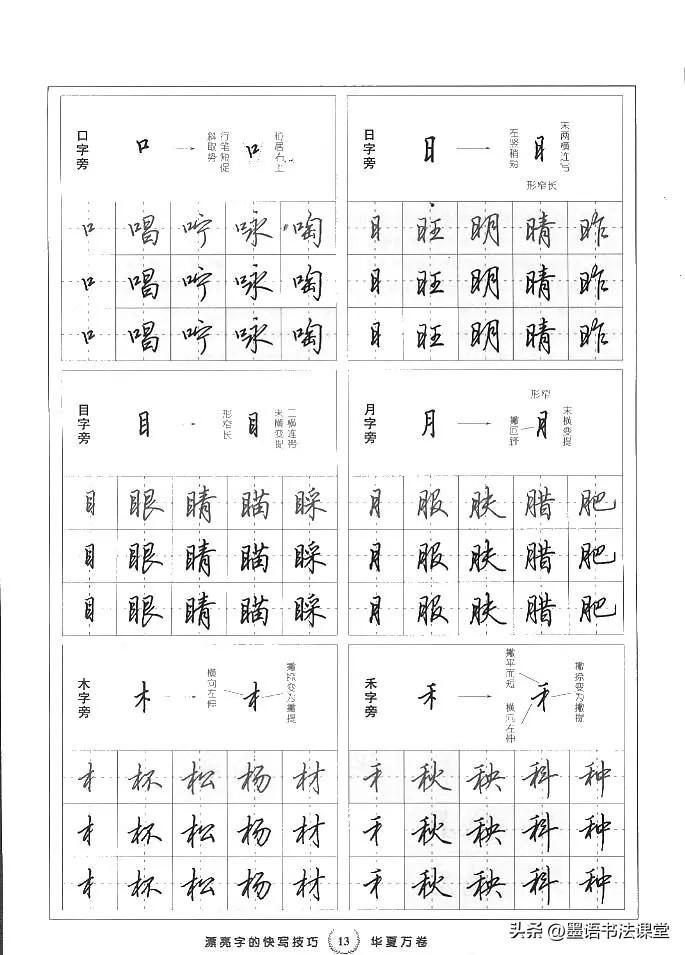 口字旁
口
行笔短促
斜取势
口
位居左上
口 唱 咛 咏 啕
口 唱 咛 咏 啕
口 唱 咛 咏 啕
日字旁
日
左竖稍短
日
末两横连写
形窄长
日 旺 明 晴 昨
日 旺 明 晴 昨
日 旺 明 晴 昨
目字旁
目
形窄长
目
二横连带
末横变提
目 眼 睛 瞄 睬
目 眼 睛 瞄 睬
目 眼 睛 瞄 睬
月字旁
月
形窄
撇回锋
月
末横变提
月 服 肤 腊 肥
月 服 肤 腊 肥
月 服 肤 腊 肥
木字旁
木
横向左伸
木
撇捺变为撇提
木 杯 松 杨 材
木 杯 松 杨 材
木 杯 松 杨 材
禾字旁
禾
撇平而短
横向左伸
禾
撇捺变为撇提
禾 秋 秧 科 种
禾 秋 秧 科 种
禾 秋 秧 科 种
漂亮字的快写技巧 13 华夏万卷
头条@墨语书法课堂